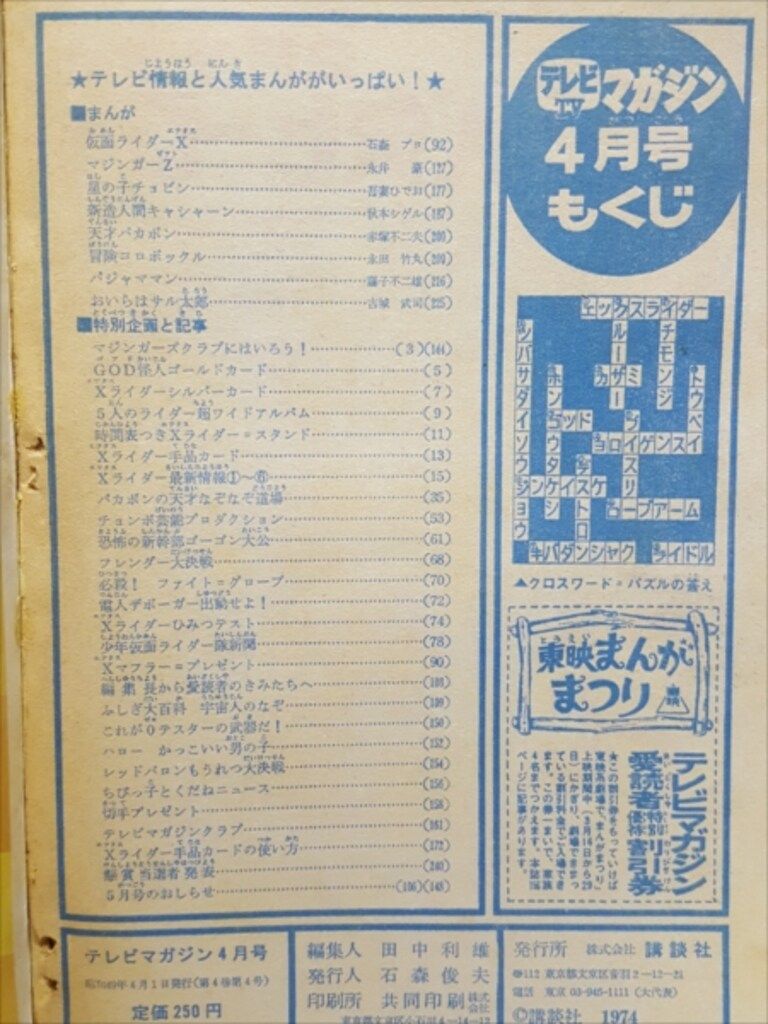 ★テレビ情報と人気まんががいっぱい！★
■まんが
仮面ライダーX 石森 プロ(92)
マジンガーZ 永井 豪(127)
星の子チョビン 吾妻ひでお(177)
新造人間キャシャーン 秋本シゲル(187)
天才バカボン 赤塚不二夫(200)
冒険コロボックル 永田 竹丸
パジャママン 藤子不二雄(216)
おいらはサル太郎 古城 武司(225)
■特別企画と記事
マジンガーズクラブにはいろう！ (3)(144)
GOD怪人ゴールドカード (5)
Xライダーシルバーカード (7)
5人のライダー超ワイドアルバム (9)
時間表つきXライダー＝スタンド (11)
Xライダー手品カード (13)
Xライダー最新情報①〜⑥ (15)
バカボンの天才なぞなぞ道場 (35)
チョンボ芸能プロダクション (53)
恐怖の新幹部ゴーゴン大公 (61)
フレンダー大決戦 (68)
必殺！ ファイト＝グローブ (70)
電人ザボーガー出動せよ！ (72)
Xライダーひみつテスト (74)
少年仮面ライダー隊新聞 (78)
Xマフラー＝プレゼント (90)
編集長から愛読者のきみたちへ
ふしぎ大百科 宇宙人のなぞ
これが0テスターの武器だ！ (150)
ハロー かっこいい男の子 (152)
レッドバロンもうれつ大決戦 (154)
ちびっ子とくだねニュース (156)
切手プレゼント (158)
テレビマガジンクラブ (161)
Xライダー手品カードの使い方 (172)
懸賞当選者発表 (240)
5月号のおしらせ
テレビマガジン
TV
4月号
もくじ
エックスライダー
▲クロスワード＝パズルの答え
東映まんが
まつり
東映
テレビマガジン
愛読者特別優待割引券
★この割引券をもっていけば
東映系劇場で、まんがまつり
上映期間中（3月16日から29
日）にかぎり、劇場できまっ
ている割引料金でご入場でき
ます。この券一まいで、家族
4名までつかえます。本誌
ページに記事があります。
テレビマガジン4月号
昭和49年4月1日発行(第4巻第4号)
定価250円
編集人 田中利雄
発行人 石森俊夫
印刷所 共同印刷株式会社
東京都文京区小石川4-14-12
発行所 株式会社 講談社
〒112 東京都文京区音羽2-12-21
電話 東京 03-945-1111（大代表）
©講談社 1974